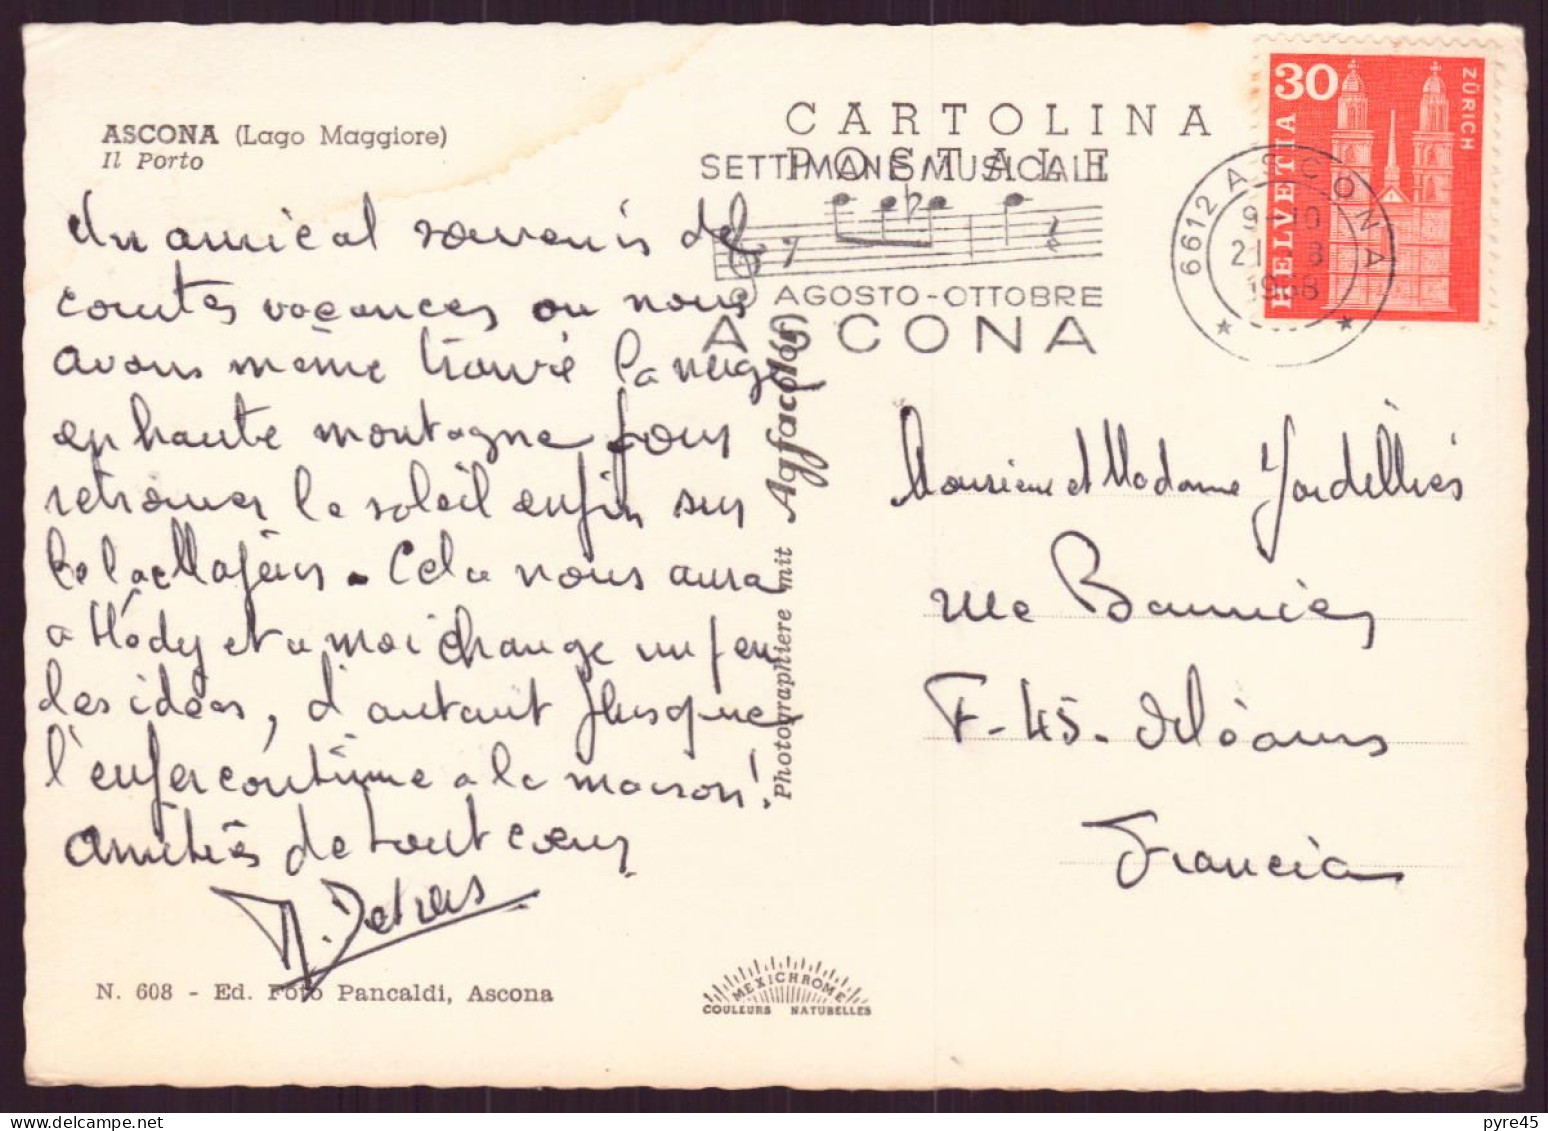 ASCONA (Lago Maggiore)
Il Porto
CARTOLINA
POSTALE
SETTIMANE MUSICALI
AGOSTO-OTTOBRE
ASCONA
6612 ASCONA
9-10
21 8
1968
30
HELVETIA
ZÜRICH
Un amical souvenir de
courtes vacances ou nous
avons même trouvé la neige
en haute montagne pour
retrouver le soleil enfin sur
le lac Majeur. Cela nous aura
a et a moi change un peu
les idées, d'autant plus que
l'enfer continue a la maison!
Amitiés de tout cœur
Photographiere mit Agfacolor
Monsieur et Madame
rue Bannier
F-45. Orléans
Francia
N. 608 - Ed. Foto Pancaldi, Ascona
MEXICHROME
COULEURS NATURELLES
pyre45